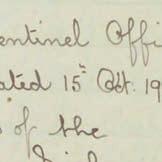 entinel Offi
ated 15th Oct. 19
of the